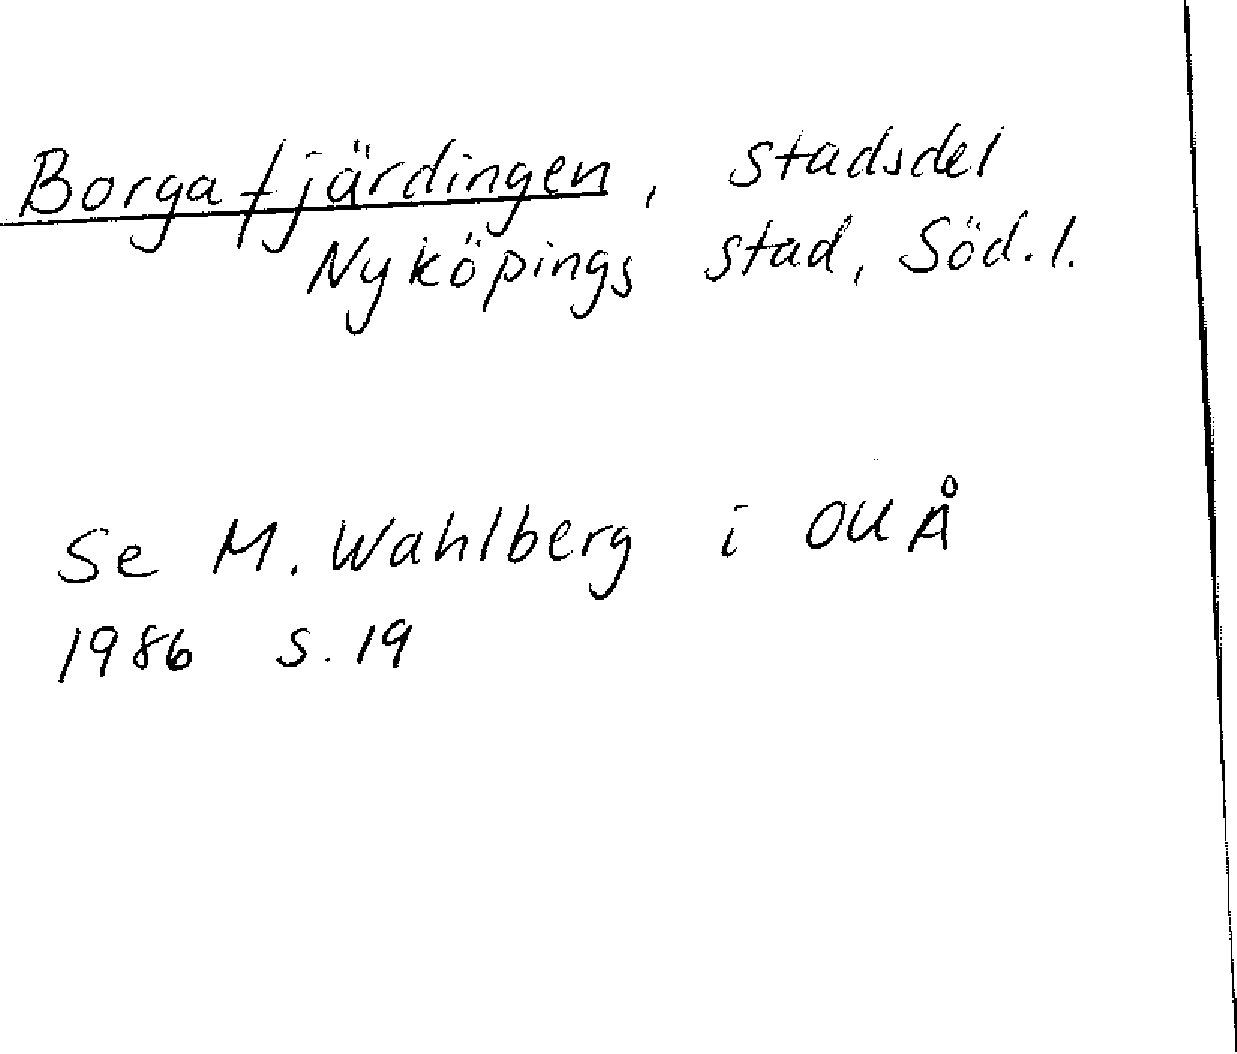 Borgafjärdingen, stadsdel
Nyköpings stad, Söd.l.
Se M. Wahlberg i OUÅ
1986 s. 19